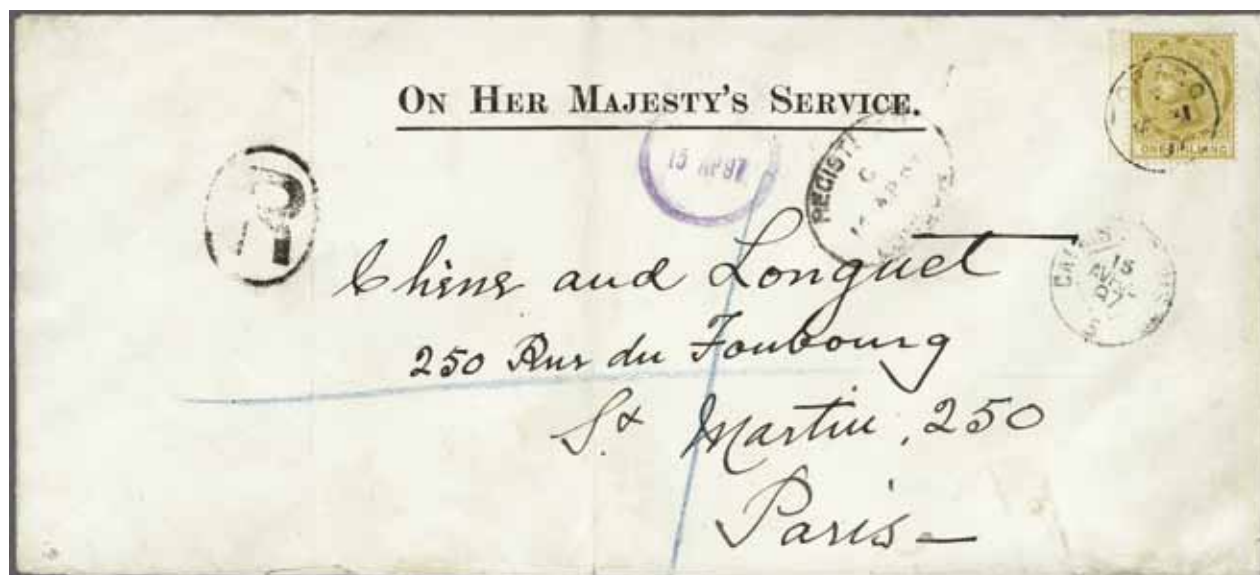 ON HER MAJESTY'S SERVICE.
ONE SHILLING
15 AP 97
R
15
97
and Longuet
250 Rue du Foubourg
St Martin, 250
Paris